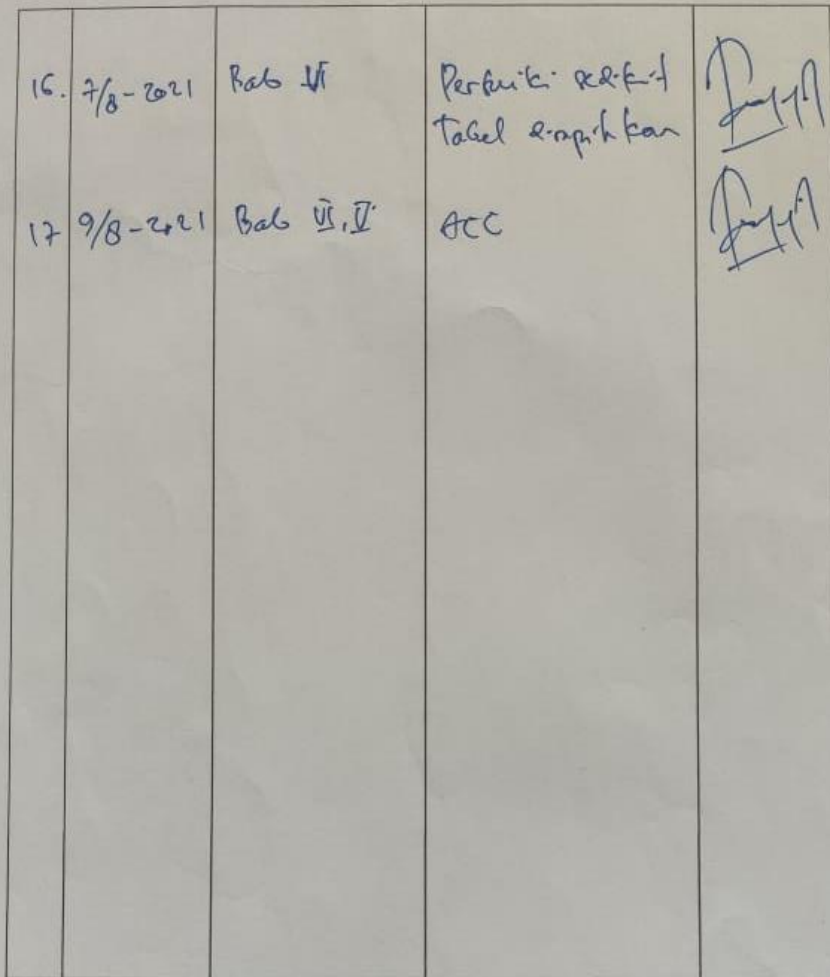 16. 7/8-2021 Bab VI Perbaiki sedikit
Tabel dirapihkan
17 9/8-2021 Bab VI, V ACC